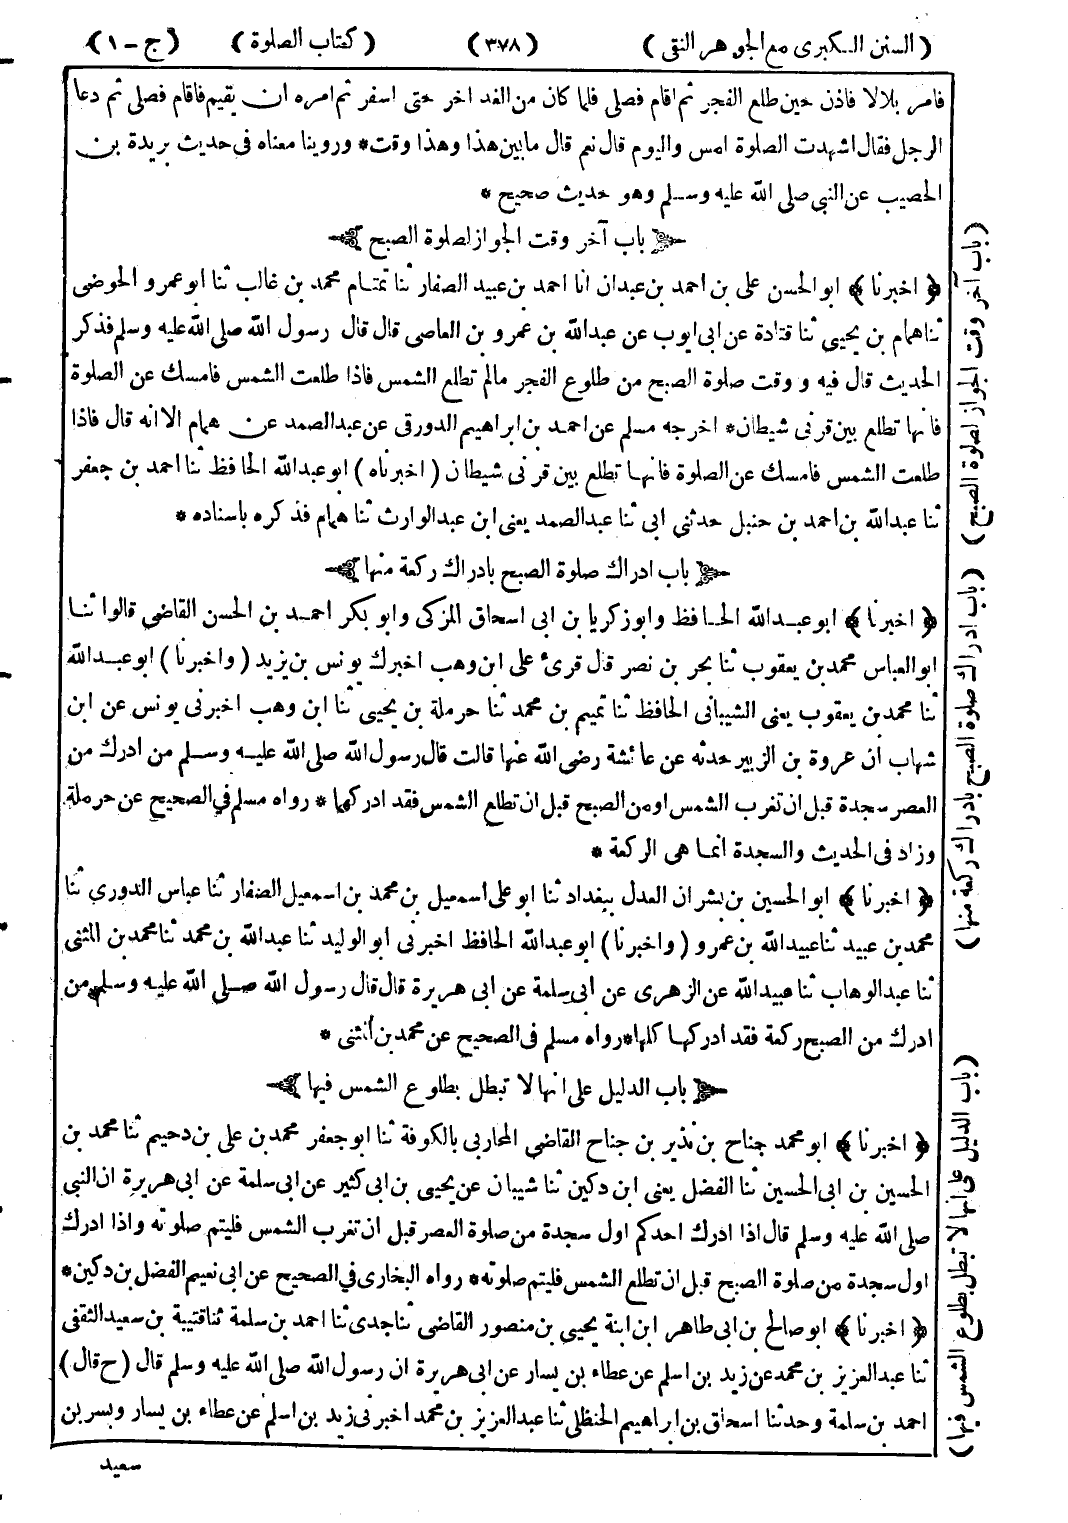 ( السنن الكبرى مع الجوهر النقى ) ( ٣٧٨ ) ( كتاب الصلوة ) ( ج - ١ )
فامر بلالا فاذن حين طلع الفجر ثم اقام فصلى فلما كان من الغد اخر حتى اسفر ثم امره ان يقيم فاقام فصلى ثم دعا
الرجل فقال اشهدت الصلوة امس واليوم قال نعم قال ما بين هذا وهذا وقت * وروينا معناه فى حديث بريدة بن
الحصيب عن النبى صلى الله عليه وسلم وهو حديث صحيح *
باب آخر وقت الجواز لصلوة الصبح
﴿ اخبرنا ﴾ ابو الحسن على بن احمد بن عبدان انا احمد بن عبيد الصفار ثنا تمتام محمد بن غالب ثنا ابو عمرو الحوضى
ثنا همام بن يحيى ثنا قتادة عن ابى ايوب عن عبدالله بن عمرو بن العاصى قال قال رسول الله صلى الله عليه وسلم فذكر
الحديث قال فيه و وقت صلوة الصبح من طلوع الفجر مالم تطلع الشمس فاذا طلعت الشمس فامسك عن الصلوة
فانها تطلع بين قرنى شيطان * اخرجه مسلم عن احمد بن ابراهيم الدورقى عن عبدالصمد عن همام الا انه قال فاذا
طلعت الشمس فامسك عن الصلوة فانها تطلع بين قرنى شيطان ( اخبرناه ) ابو عبدالله الحافظ ثنا احمد بن جعفر
ثنا عبدالله بن احمد بن حنبل حدثنى ابى ثنا عبدالصمد يعنى ابن عبدالوارث ثنا همام فذكره باسناده *
باب ادراك صلوة الصبح بادراك ركعة منها
﴿ اخبرنا ﴾ ابو عبدالله الحافظ وابو زكريا بن ابى اسحاق المزكى وابو بكر احمد بن الحسن القاضى قالوا ثنا
ابو العباس محمد بن يعقوب ثنا بحر بن نصر قال قرئ على ابن وهب اخبرك يونس بن يزيد ( واخبرنا ) ابو عبدالله
ثنا محمد بن يعقوب يعنى الشيبانى الحافظ ثنا تميم بن محمد ثنا حرملة بن يحيى ثنا ابن وهب اخبرنى يونس عن ابن
شهاب ان عروة بن الزبير حدثه عن عائشة رضى الله عنها قالت قال رسول الله صلى الله عليه وسلم من ادرك من
العصر سجدة قبل ان تغرب الشمس او من الصبح قبل ان تطلع الشمس فقد ادركها * رواه مسلم فى الصحيح عن حرملة
وزاد فى الحديث والسجدة انما هى الركعة *
﴿ اخبرنا ﴾ ابو الحسين بن بشران العدل ببغداد ثنا ابو على اسمعيل بن محمد بن اسمعيل الصفار ثنا عباس الدورى ثنا
محمد بن عبيد ثنا عبيدالله بن عمرو ( واخبرنا ) ابو عبدالله الحافظ اخبرنى ابو الوليد ثنا عبدالله بن محمد ثنا محمد بن المثنى
ثنا عبدالوهاب ثنا عبيدالله عن الزهرى عن ابى سلمة عن ابى هريرة قال قال رسول الله صلى الله عليه وسلم من
ادرك من الصبح ركعة فقد ادركها كلها * رواه مسلم فى الصحيح عن محمد بن المثنى *
باب الدليل على انها لا تبطل بطلوع الشمس فيها
﴿ اخبرنا ﴾ ابو محمد جناح بن نذير بن جناح القاضى المحاربى بالكوفة ثنا ابو جعفر محمد بن على بن دحيم ثنا محمد بن
الحسين بن ابى الحسين ثنا الفضل يعنى ابن دكين ثنا شيبان عن يحيى بن ابى كثير عن ابى سلمة عن ابى هريرة ان النبى
صلى الله عليه وسلم قال اذا ادرك احدكم اول سجدة من صلوة العصر قبل ان تغرب الشمس فليتم صلوته واذا ادرك
اول سجدة من صلوة الصبح قبل ان تطلع الشمس فليتم صلوته * رواه البخارى فى الصحيح عن ابى نعيم الفضل بن دكين *
﴿ اخبرنا ﴾ ابو صالح بن ابى طاهر ابن ابنة يحيى بن منصور القاضى ثنا جدى ثنا احمد بن سلمة ثنا قتيبة بن سعيد الثقفى
ثنا عبدالعزيز بن محمد عن زيد بن اسلم عن عطاء بن يسار عن ابى هريرة ان رسول الله صلى الله عليه وسلم قال ( ح قال )
احمد بن سلمة وحدثنا اسحاق بن ابراهيم الحنظلى ثنا عبدالعزيز بن محمد اخبرنى زيد بن اسلم عن عطاء بن يسار وبسر بن
سعيد
( باب آخر وقت الجواز لصلوة الصبح )
( باب ادراك صلوة الصبح بادراك ركعة منها )
( باب الدليل على انها لا تبطل بطلوع الشمس فيها )